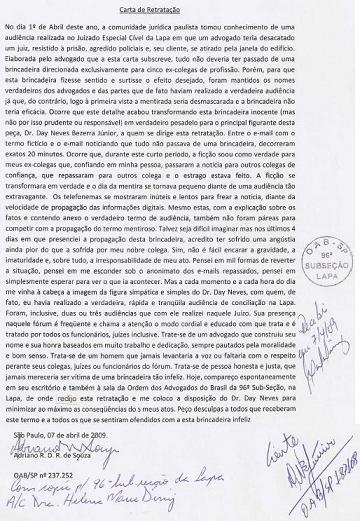 Carta de Retratação
No dia 1º de Abril deste ano, a comunidade jurídica paulista tomou conhecimento de uma
audiência realizada no Juizado Especial Cível da Lapa em que um advogado teria desacatado
um juiz, resistido à prisão, agredido policiais e, seu cliente, se atirado pela janela do edifício.
Elaborada pelo advogado que a esta carta subscreve, tudo não deveria ter passado de uma
brincadeira direcionada exclusivamente para cinco ex-colegas de profissão. Porém, para que
esta brincadeira fizesse sentido e surtisse o efeito desejado, foram mantidos os nomes
verdadeiros dos advogados e das partes que de fato haviam realizado a verdadeira audiência
já que, do contrário, logo à primeira vista a mentirada seria desmascarada e a brincadeira não
teria eficácia. Ocorre que este detalhe acabou transformando esta brincadeira inocente (mas
não por isso prudente ou responsável) em verdadeiro pesadelo para o principal figurante desta
peça, Dr. Day Neves Bezerra Júnior, a quem se dirige esta retratação. Entre o e-mail com o
termo fictício e o e-mail noticiando que tudo não passava de uma brincadeira, decorreram
exatos 20 minutos. Ocorre que, durante este curto período, a ficção soou como verdade para
meus ex-colegas que, confiando em minha pessoa, passaram a notícia para outros colegas de
confiança, que repassaram para outros colega e o estrago estava feito. A ficção se
transformara em verdade e o dia da mentira se tornava pequeno diante de uma audiência tão
extravagante. Os telefonemas se mostraram inúteis e lentos para frear a notícia, diante da
velocidade de propagação das informações digitais. Mesmo estas, com a explicação sobre os
fatos e contendo anexo o verdadeiro termo de audiência, também não foram páreas para
competir com a propagação do termo mentiroso. Talvez seja difícil imaginar mas nos últimos 4
dias em que presenciei a propagação desta brincadeira, acredito ter sofrido uma angústia
ainda pior do que a sofrida por meu nobre colega. Sim, não é fácil encarar a gravidade, a
imaturidade e, sobre tudo, a irresponsabilidade de meu ato. Pensei em mil formas de reverter
a situação, pensei em me esconder sob o anonimato dos e-mails repassados, pensei em
simplesmente esperar para ver o que ia acontecer. Mas a cada momento e a cada hora do dia
me vinha à cabeça a imagem da figura simpática e simples do Dr. Day Neves, com quem, de
fato, eu havia realizado a verdadeira, rápida e tranquila audiência de conciliação na Lapa.
Foram, inclusive, duas ou três audiências que com ele realizei naquele Juízo. Sua presença
naquele fórum é freqüente e chama a atenção o modo cordial e educado com que trata e é
tratado por todos os funcionários, juízes inclusive. Trata-se de um advogado que construiu seu
nome e sua honra baseados em muito trabalho e dedicação, sempre pautados pela moralidade
e bom senso. Trata-se de um homem que jamais levantaria a voz ou faltaria com o respeito
perante seus colegas, juízes ou funcionários do fórum. Trata-se de pessoa honesta e justa, que
jamais mereceria ser vítima de uma brincadeira tão infeliz. Hoje, compareço espontaneamente
em seu escritório e também à sala da Ordem dos Advogados do Brasil da 96ª Sub-Seção, na
Lapa, de onde redijo esta retratação e me coloco a disposição do Dr. Day Neves para
minimizar ao máximo as conseqüências do s meus atos. Peço desculpas a todos que receberam
este termo e a todos os que se sentiram ofendidos com a esta brincadeira infeliz
São Paulo, 07 de abril de 2009.
Adriano R. D. R. de Souza
OAB/SP nº 237.252
Com cópia p/ 96ª Sub-
A/C Dra. Helena Maria Diniz
OAB-SP
96ª
SUBSEÇÃO
LAPA
Recebi
Ciente
OAB/SP